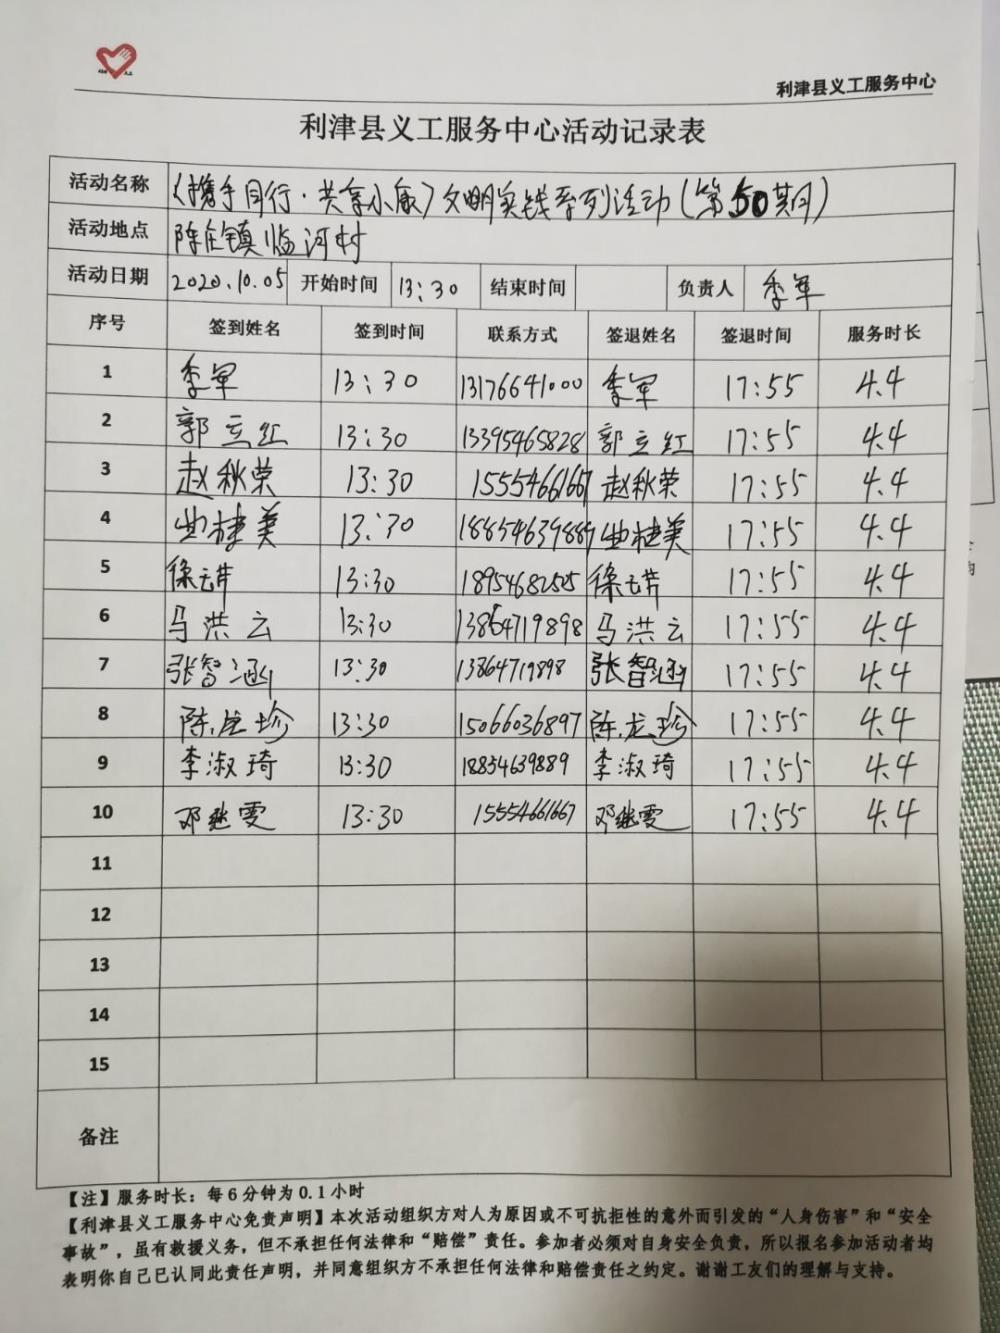 利津县义工服务中心
利津县义工服务中心活动记录表
活动名称 《携手同行·共享小康》文明实践系列活动(第50期)
活动地点 陈庄镇临河村
活动日期 2020.10.05 开始时间 13:30 结束时间 负责人 季军
序号 签到姓名 签到时间 联系方式 签退姓名 签退时间 服务时长
1 季军 13:30 13176641000 季军 17:55 4.4
2 郭立红 13:30 13395465828 郭立红 17:55 4.4
3 赵秋荣 13:30 15554661667 赵秋荣 17:55 4.4
4 曲桂美 13:30 18854639889 曲桂美 17:55 4.4
5 徐云芹 13:30 18954682505 徐云芹 17:55 4.4
6 马洪云 13:30 13864719898 马洪云 17:55 4.4
7 张智涵 13:30 13864719898 张智涵 17:55 4.4
8 陈龙珍 13:30 15066036897 陈龙珍 17:55 4.4
9 李淑琦 13:30 18834639889 李淑琦 17:55 4.4
10 邓继雯 13:30 15554661667 邓继雯 17:55 4.4
11
12
13
14
15
备注
【注】服务时长：每6分钟为0.1小时
【利津县义工服务中心免责声明】本次活动组织方对人为原因或不可抗拒性的意外而引发的“人身伤害”和“安全
事故”，虽有救援义务，但不承担任何法律和“赔偿”责任。参加者必须对自身安全负责，所以报名参加活动者均
表明你自己已认同此责任声明，并同意组织方不承担任何法律和赔偿责任之约定。谢谢工友们的理解与支持。